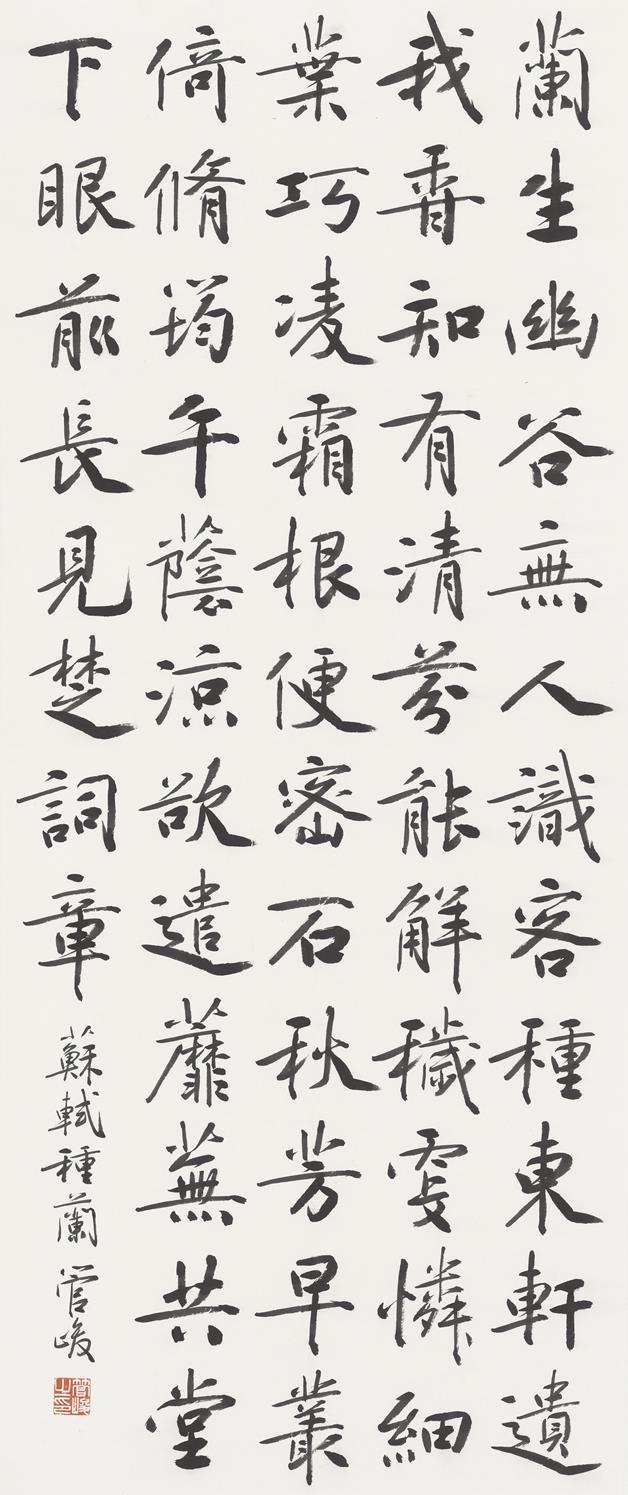 蘭生幽谷無人識客種東軒遺
我香知有清芬能解穢更憐細
葉巧凌霜根便密石秋芳早叢
倚脩筠午蔭涼欲遣蘼蕪共堂
下眼前長見楚詞章
蘇軾種蘭 管峻
管峻之印